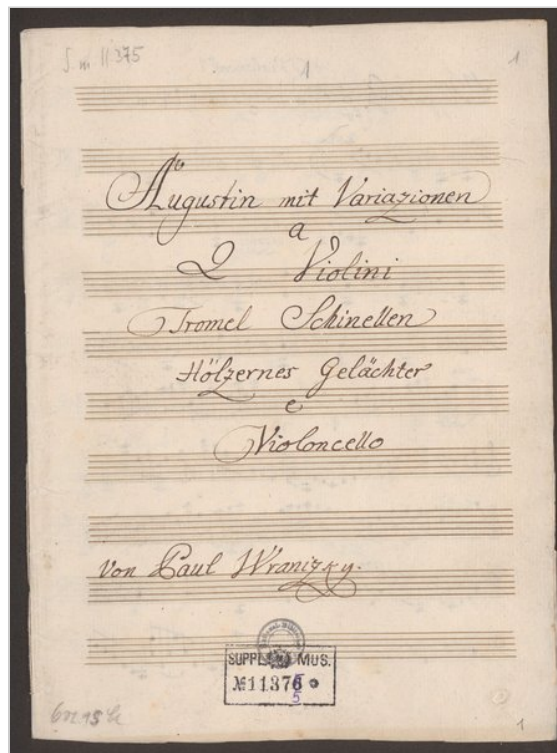 S. m 11375
1
1
Augustin mit Variazionen
a
2 Violini
Tromel Schinellen
Hölzernes Gelächter
e
Violoncello
Von Paul Wranizky.
SUPPL. MUS.
№11376
5
1